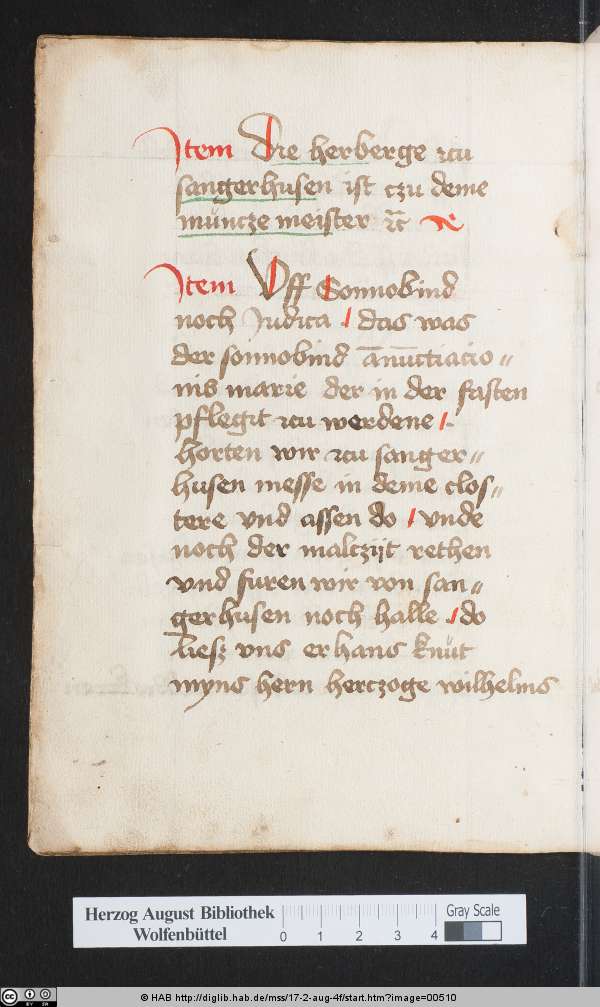 Item Die herberge zcu
sangerhusen ist czu deme
müncze meister ꝛc̄
Item Vff Sonnobind
noch Iudica / das was
der sonnobind an̄ūctiacio〃
nis marie der in der fasten
pflegit zcu werdene /
horten wir zcu sanger〃
husen messe in deme clos〃
tere vnd assen do / vnde
noch der malczijt rethen
vnd furen wir von san〃
gerhusen noch halle / do
liesz vns er hans knüt
myns hern herczoge wilhelms
Herzog August Bibliothek
Wolfenbüttel
0 1 2 3 4
Gray Scale
© HAB http://diglib.hab.de/mss/17-2-aug-4f/start.htm?image=00510